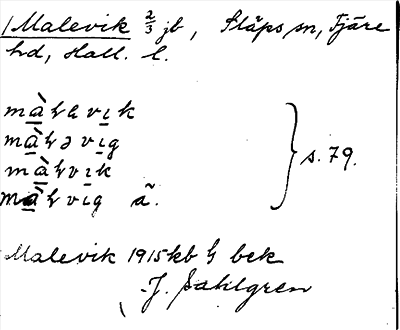 Malevik 2/3 jb, Släps sn, Fjäre
hd, Hall. l.
màɫavik
màɫəvig
màɫvik
màɫvig ã.
s. 79.
Malevik 1915 kb ɫ bek
J. Sahlgren